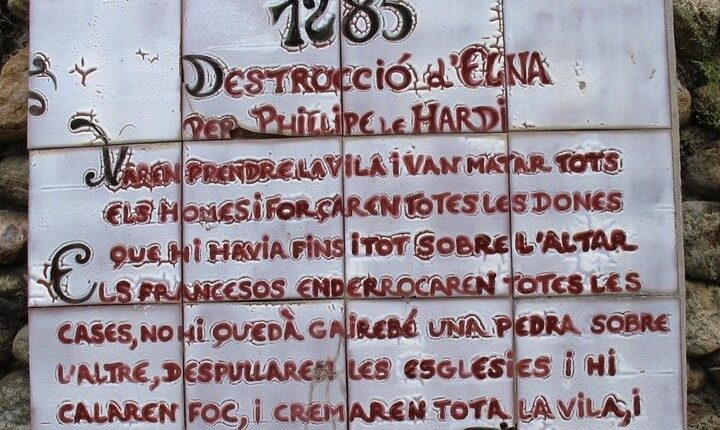 1285
DESTROCCIÓ d'ELNA
PER PHILLIPE LE HARDI
VAREN PRENDRE LA VILA I VAN MATAR TOTS
ELS HOMES I FORÇAREN TOTES LES DONES
QUE HI HAVIA FINS I TOT SOBRE L'ALTAR
ELS FRANCESOS ENDERROCAREN TOTES LES
CASES, NO HI QUEDÀ GAIREBÉ UNA PEDRA SOBRE
L'ALTRE, DESPULLAREN LES ESGLESIES I HI
CALAREN FOC, I CREMAREN TOTA LA VILA, I